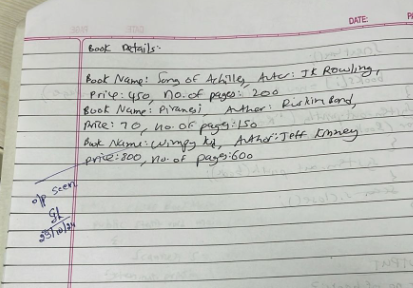 DATE:
Book Details:-
Book Name: Song of Achilles, Autor: JK Rowling,
Price: 450, no. of pages: 200
Book Name: Piranesi, Author: Ruskin Bond,
Price: 70, no. of pages: 150
Book Name: Wimpy Kid, Author: Jeff Kinney
price: 800, no. of pages: 600
o/p seen
23/10/24